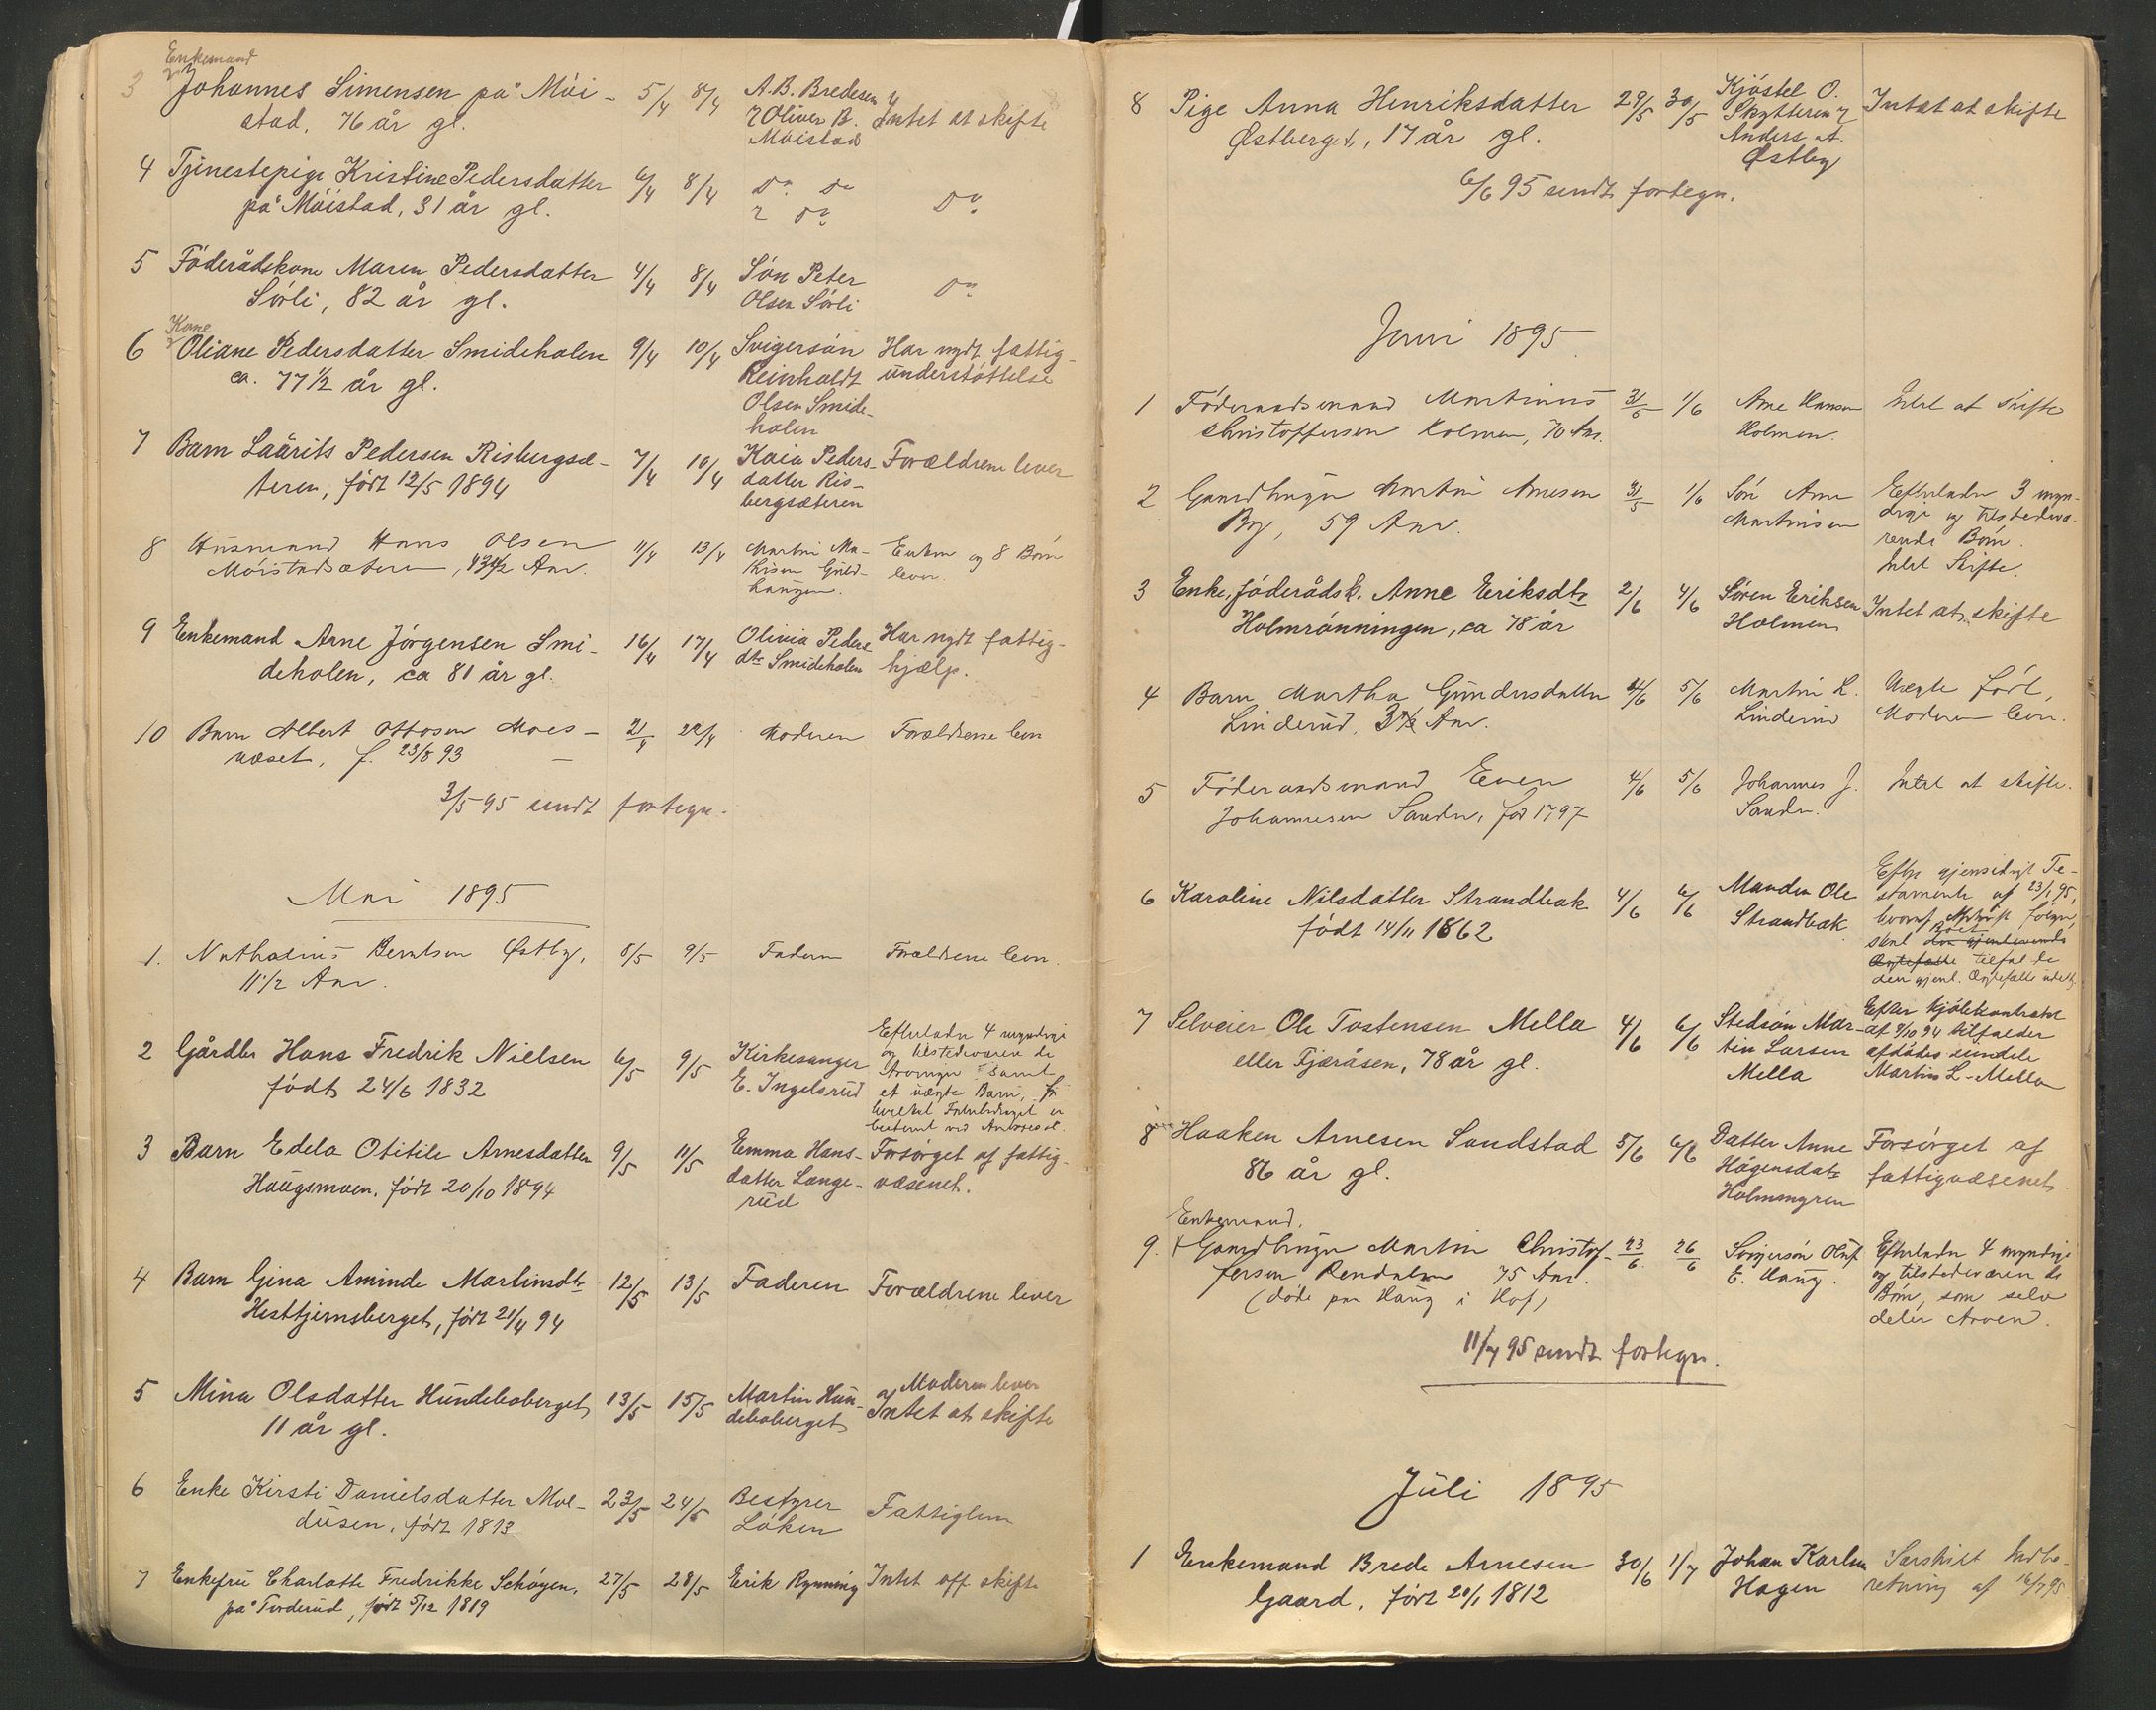 Enkemand
3 Johannes Simensen på Möi- 5/4 8/4 A. B. Bredesen
stad, 76 år gl. & Oliver B. Intet at skifte
Möistad
4 Tjenestepige Kristine Pedersdatter 6/4 8/4 Do Do
på Möistad, 31 år gl. & Do Do
5 Föderådskone Maren Pedersdatter 4/4 8/4 Sön Peter
Sörli, 82 år gl. Olsen Sörli Do
Kone
6 Oliane Pedersdatter Smideholen 9/4 10/4 Svigersön Har nydt fattig-
ca. 77 1/2 år gl. Reinholdt understöttelse
Olsen Smide-
holen
7 Barn Laurits Pedersen Risbergsæ- 7/4 10/4 Kaia Peders- Forældrene lever
teren, född 12/5 1894 datter Ris-
bergsæteren
8 Husmand Hans Olsen 11/4 13/4 Martin Ma- Enken og 8 Börn
Möistadsæteren, Aar. thisen Guld- lever.
haugen.
9 Enkemand Arne Jörgensen Smi- 16/4 17/4 Olivia Peders- Har nydt fattig-
deholen, ca 81 år gl. dtr Smideholen hjælp.
10 Barn Albert Ottosen Moes- 21/4 22/4 Moderen Forældrene lever
næset, f. 23/8 93
3/5 95 sendt fortegn.
Mai 1895
1. Nathalius Berntsen Østby, 8/5 9/5 Faderen Forældrene lever.
11 1/2 Aar.
2 Gårdbr Hans Fredrik Nielsen 6/5 9/5 Kirkesanger Efterlader 4 myndige
født 24/6 1832 E. Ingelsrud og tilstedeværende
Arvinger samt
et uægte Barn, for
hvilket Farsbidraget er
bestemt ved
3 Barn Edela Otitile Arnesdatter 9/5 11/5 Emma Hans- Forsörget af fattig-
Haugsmoen, födt 20/10 1894 datter Lange- væsenet.
rud
4 Barn Gina Aminde Martinsdtr 12/5 13/5 Faderen Forældrene lever
Hesttjernsberget, födt 21/4 94
5 Mina Olsdatter Hundeboberget 13/5 15/5 Martin Hun- Moderen lever
11 år gl. deboberget Intet at skifte
6 Enke Kirsti Danielsdatter Mol- 23/5 24/5 Bestyrer Fattiglem
dusen, födt 1813 Löken
7 Enkefru Charlotte Fredrikke Schöyen, 27/5 28/5 Erik Rynning Intet att skifte
på Torderud, födt 5/12 1819
8 Pige Anna Henriksdatter 29/5 30/5 Kjöstel O. Intet at skifte
Østberget, 17 år gl. Skytteren &
Anders A.
Østby
6/6 95 sendt fortegn.
Juni 1895
1 Föderaadsmand Martinus 31/5 1/6 Arne Hansen Intet at skifte
Christoffersen Holmen, 70 Aar. Holmen.
2 Gaardbruger Martin Arnesen 31/5 1/6 Sön Arne Efterlader 3 myn-
By, 59 Aar. Martinsen dige og tilstedevæ-
rende Börn.
Intet Skifte.
3 Enke, föderådsk. Anne Eriksdtr 2/6 4/6 Sören Eriksen Intet at skifte
Holmrönningen, ca 78 år Holmen
4 Barn Martha Gundersdatter 4/6 5/6 Martin L. Uægte født,
Linderud, Aar. Linderud Moderen lever.
5 Föderaadsmand Even 4/6 5/6 Johannes J. Intet at skifte.
Johannesen Sander, fød 1797 Sander.
6 Karoline Nilsdatter Strandbak 4/6 6/6 Manden Ole Efter gjensidigt Te-
født 14/11 1862 Strandbak stamente af 23/1 95,
hvoraf Afskrift følger,
skal Boet den gjenlevende
Ægtefælle tilfalde
den gjenl. Ægtefælle udelt.
7 Selveier Ole Tostensen Mella 4/6 6/6 Stedsön Mar- Efter Kjöbekontrakt
eller Fjæråsen, 78 år gl. tin Larsen af 9/10 94 tilfalder
Mella afdödes eiendele
Martin L. Mella
8 Haaken Arnesen Sandstad 5/6 6/6 Datter Anne Forsörget af
86 år gl. Hågensdatr fattigvæsenet
Holmmyren
Enkemand.
9. Gaardbruger Martin Christof- 23/6 26/6 Svigersön Oluf Efterlader 4 myndige
fersen Rendalen 75 Aar. E. Haug. og tilstedeværende
(døde paa Haug i Hof) Börn, som selv
deler Arven.
11/7 95 sendt fortegn.
Juli 1895
1 Enkemand Brede Arnesen 30/6 1/7 Johan Karlsen Særskilt Indbe-
Gaard, födt 20/1 1812 Hagen retning af 16/7 95